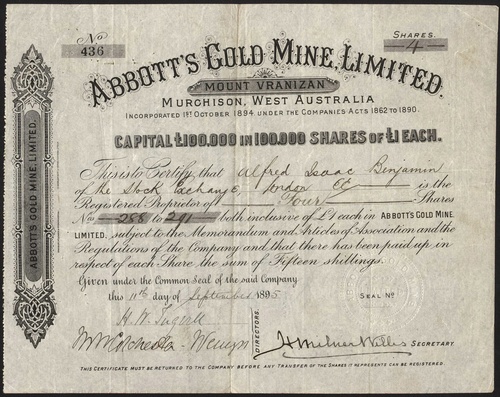 No
436
SHARES.
4
ABBOTT'S GOLD MINE, LIMITED.
MOUNT VRANIZAN
MURCHISON, WEST AUSTRALIA
INCORPORATED 1ST OCTOBER 1894 UNDER THE COMPANIES ACTS 1862 TO 1890.
CAPITAL £100,000 IN 100,000 SHARES OF £1 EACH.
This is to Certify, that Alfred Isaac Benjamin
of The Stock Exchange London EC is the
Registered Proprietor of Four Shares
Nos 288 to 291 both inclusive of £1 each in ABBOTT'S GOLD MINE,
LIMITED, subject to the Memorandum and Articles of Association and the
Regulations of the Company and that there has been paid up in
respect of each Share the sum of Fifteen shillings.
Given under the Common Seal of the said Company
this 11th day of September 1895
SEAL No
DIRECTORS.
SECRETARY
THIS CERTIFICATE MUST BE RETURNED TO THE COMPANY BEFORE ANY TRANSFER OF THE SHARES IT REPRESENTS CAN BE REGISTERED.
ABBOTT'S GOLD MINE, LIMITED.